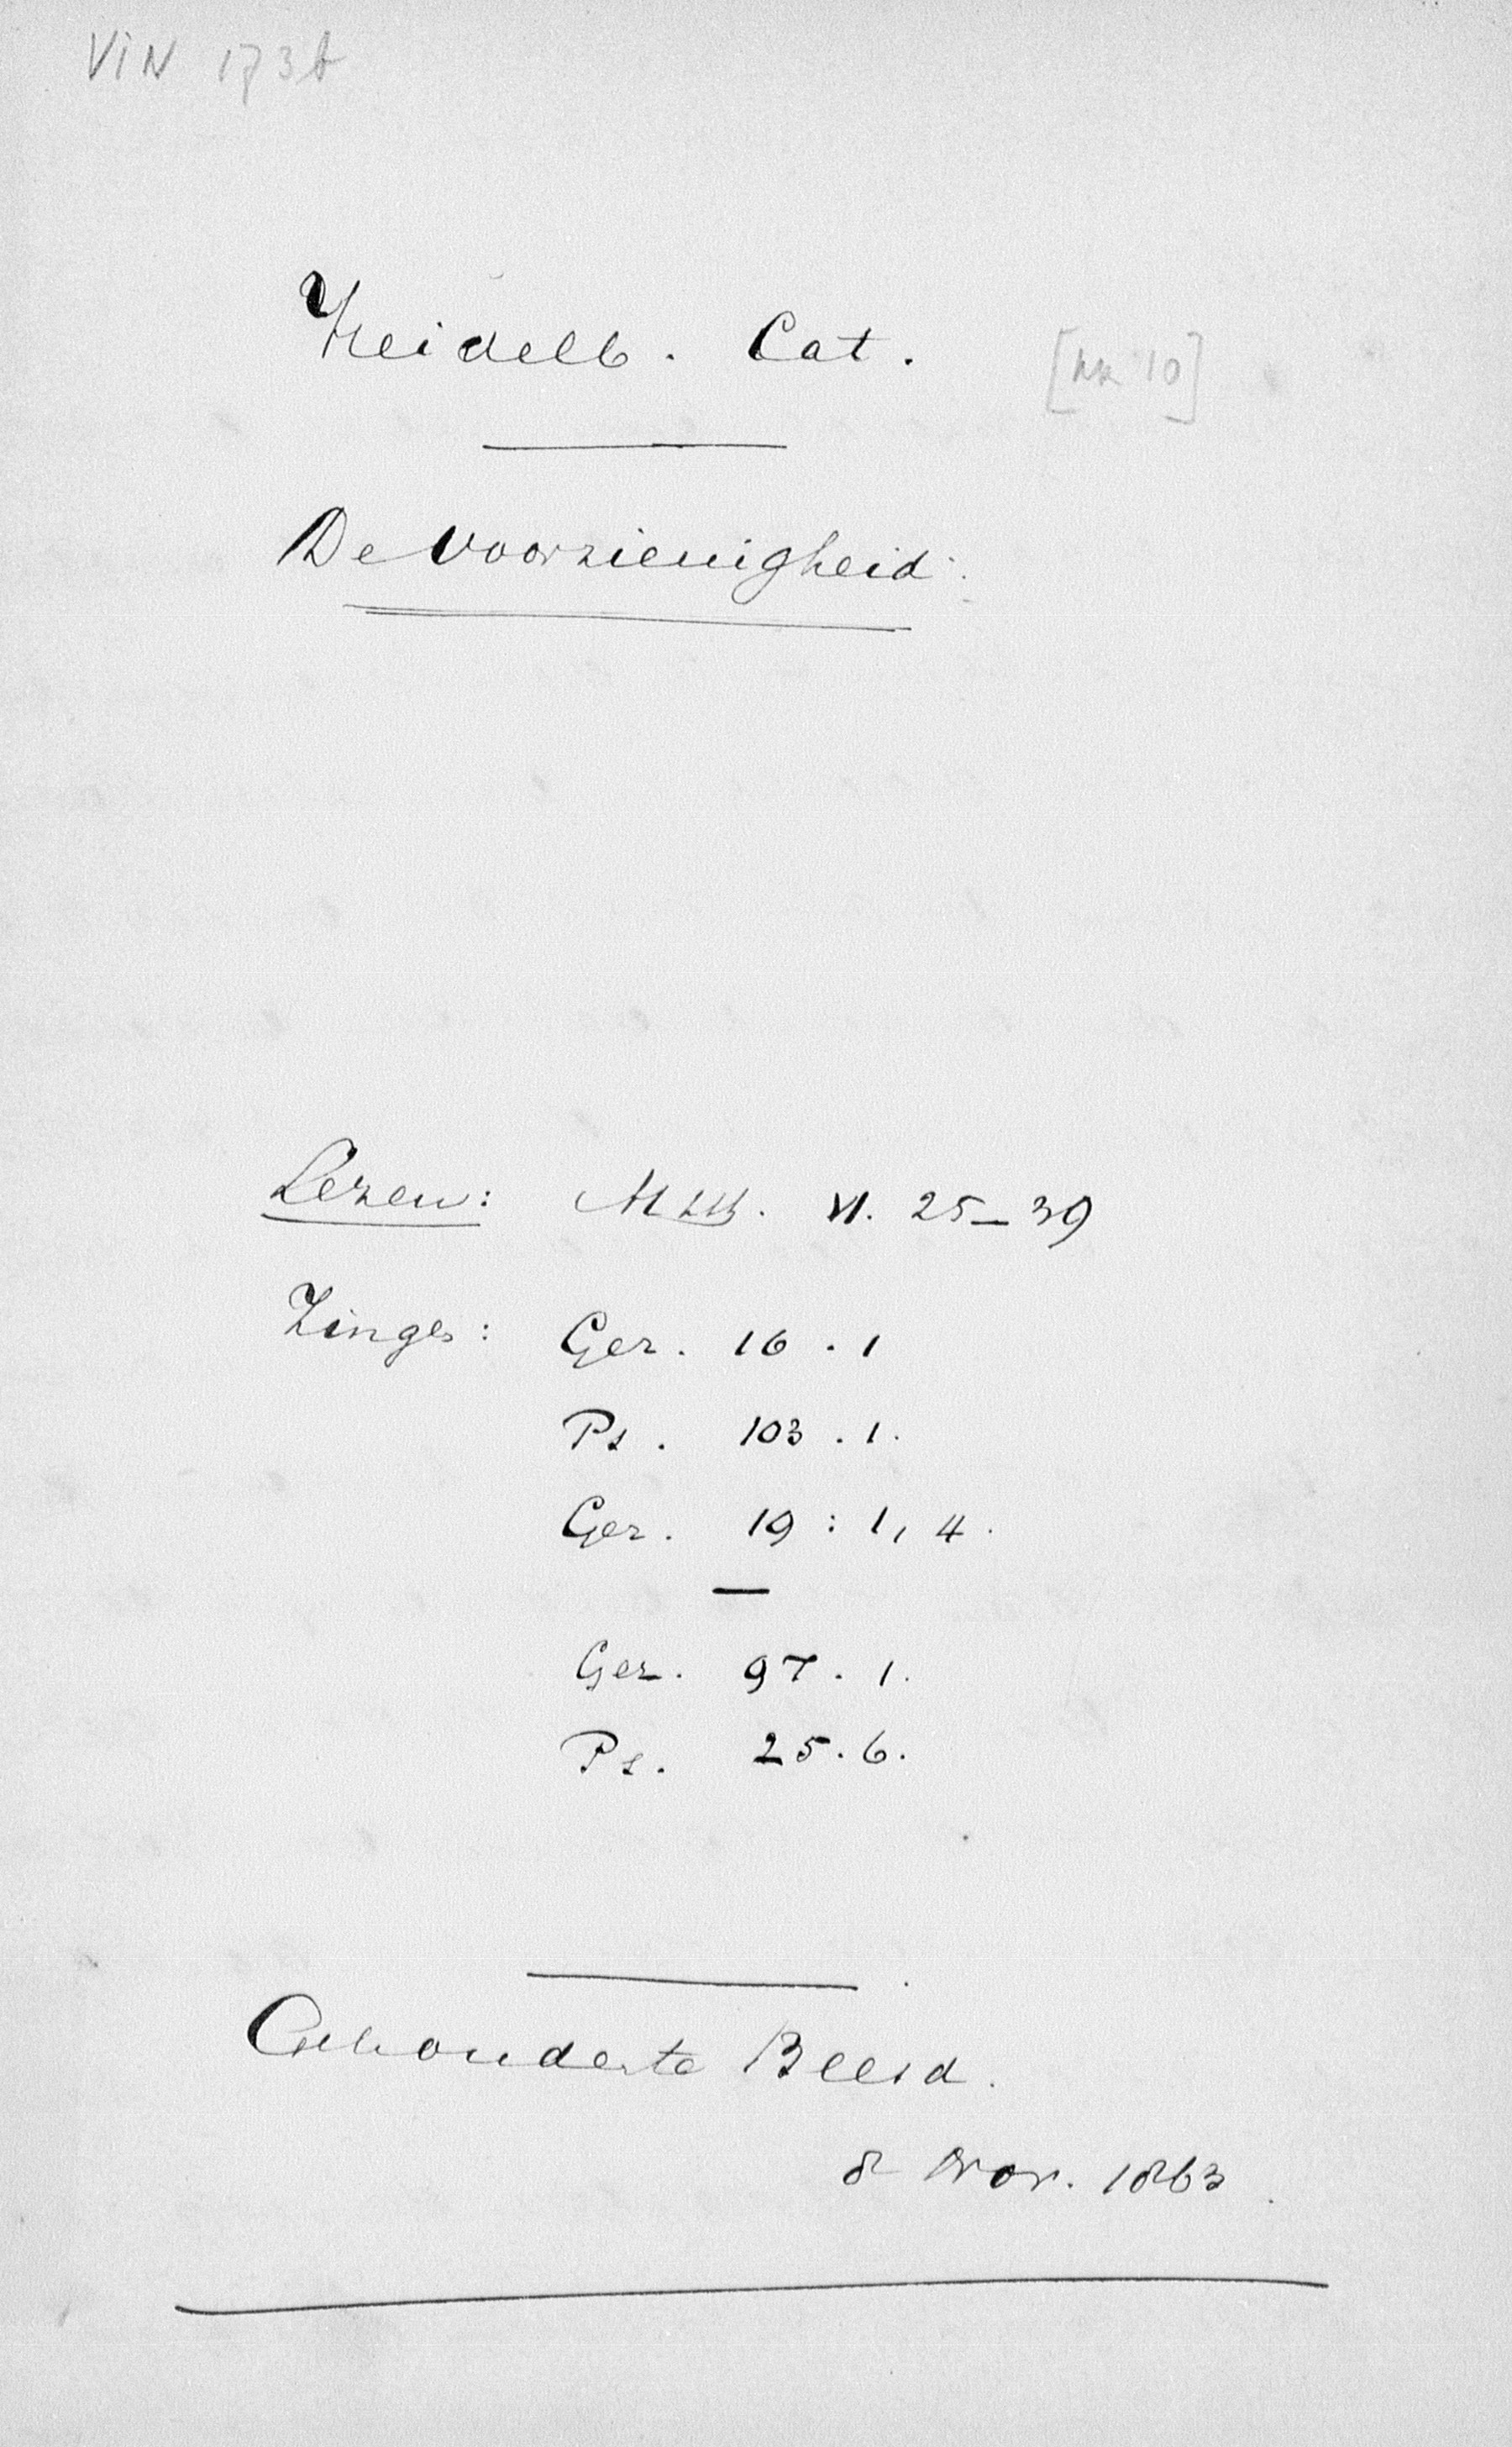 VIN 173b
Heidelb. Cat.
[NR 10]
De Voorzienigheid.
Lezen: Matth. VI. 25-39
Zingen: Gez. 16.1
Ps. 103.1.
Gez. 19: 1, 4.
Gez. 97.1.
Ps. 25.6.
Gehouden te Beesd.
8 Nov. 1863.